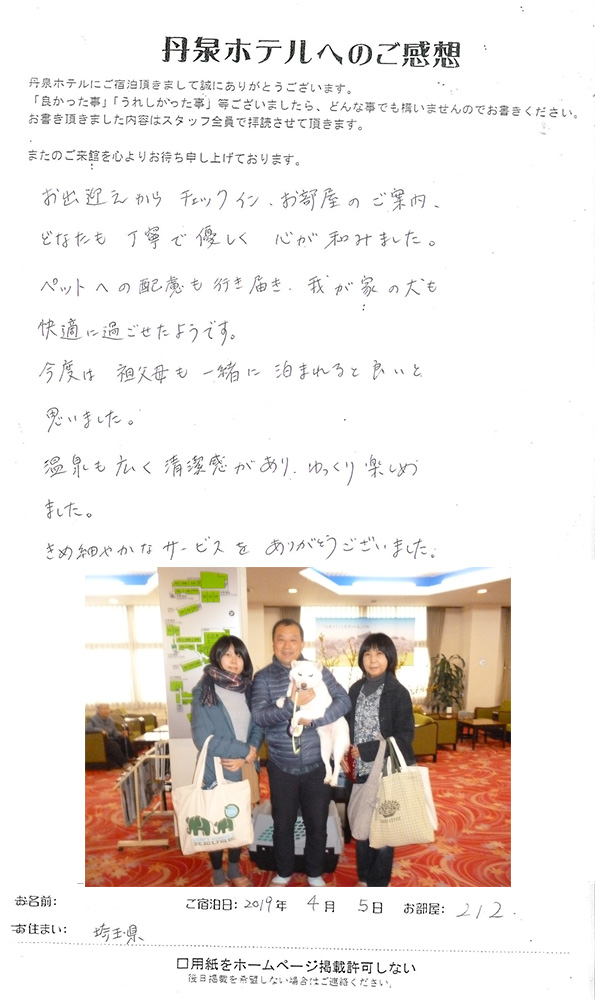 丹泉ホテルへのご感想
丹泉ホテルにご宿泊頂きまして誠にありがとうございます。
「良かった事」「うれしかった事」等ございましたら、どんな事でも構いませんのでお書きください。
お書き頂きました内容はスタッフ全員で拝読させて頂きます。
またのご来館を心よりお待ち申し上げております。
お出迎えから チェックイン、お部屋のご案内、
どなたも 丁寧で優しく 心が和みました。
ペットへの配慮も行き届き、我が家の犬も
快適に過ごせたようです。
今度は 祖父母も一緒に 泊まれると良いと
思いました。
温泉も広く清潔感があり、ゆっくり楽しめ
ました。
きめ細やかなサービスを ありがとうございました。
お名前:
ご宿泊日: 2019年 4月 5日 お部屋: 212
お住まい: 埼玉県
□用紙をホームページ掲載許可しない
後日掲載を希望しない場合はご連絡ください。